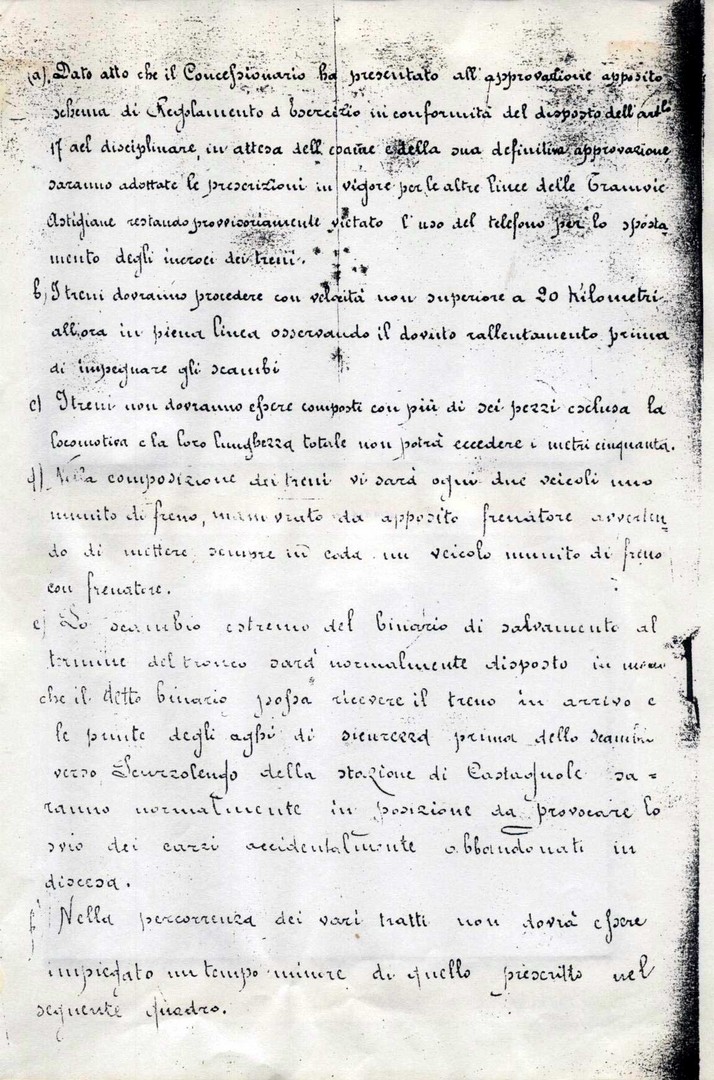 (a). Dato atto che il Concessionario ha presentato all'approvazione apposito
schema di Reglamento d Esercizio in conformità del disposto dell'artlo
17 del disciplinare, in attesa dell esame e della sua definitiva approvazione
saranno adottate le prescrizioni in vigore per le altre linee delle Tramvie
Astigiane restando provvisoriamente vietato l'uso del telefono per lo sposta
mento degli incroci dei treni.
b) I treni dovranno procedere con velocità non superiore a 20 Kilometri
all'ora in piena linea osservando il dovuto rallentamento prima
di impegnare gli scambi
c) I treni non dovranno essere composti con più di sei pezzi esclusa la
locomotiva e la loro lunghezza totale non potrà eccedere i metri cinquanta.
d) Nella composizione dei treni vi sarà ogni due veicoli uno
munito di freno, manovrato da apposito frenatore avverten-
do di mettere sempre in coda un veicolo munito di freno
con frenatore.
e) Lo scambio estremo del binario di salvamento al
termine del tronco sarà normalmente disposto in
che il detto binario possa ricevere il treno in arrivo e
le punte degli aghi di sicurezza prima dello scambio
verso Scurzolengo della stazione di Castagnole sa=
ranno normalmente in posizione da provocare lo
svio dei carri accidentalmente abbandonati in
discesa.
f) Nella percorrenza dei vari tratti non dovrà essere
impiegato un tempo minore di quello prescritto nel
seguente quadro.